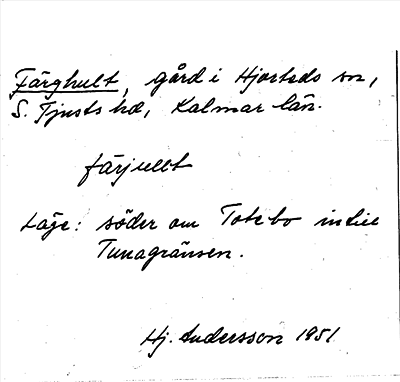 Färghult, gård i Hjorteds sn,
S. Tjusts hd, Kalmar län.
färjullt
Läge: söder om Totebo intill
Tunagränsen.
Hj. Andersson 1951